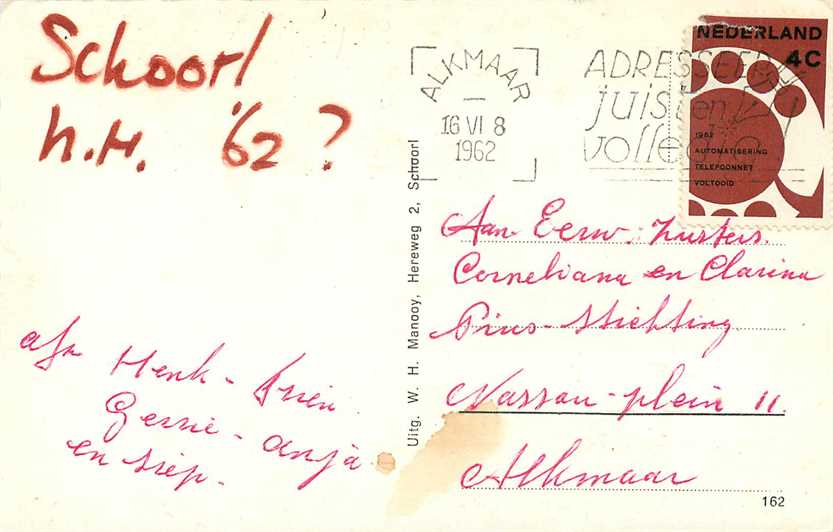 Schoorl
N.H. '62?
ALKMAAR
16 VI 8
1962
ADRESSEER
juist en
volledig
NEDERLAND
4C
1962
AUTOMATISERING
TELEFOONNET
VOLTOOID
Uitg. W. H. Manooy, Hereweg 2, Schoorl
Aan Eerw. Zusters.
Corneliana en Clarina
Pius-Stichting
Nassau-plein 11.
Alkmaar
afz Henk - Trien
Gerrie - Anja
en Siep.
162